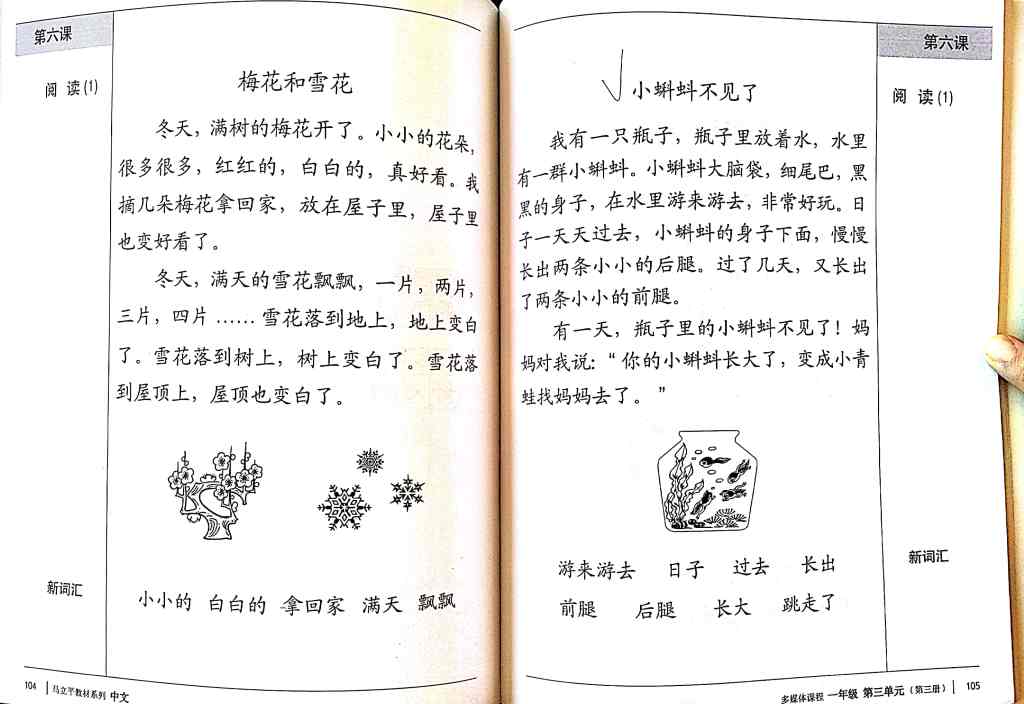 第六课
阅 读(1)
梅花和雪花
冬天，满树的梅花开了。小小的花朵，
很多很多，红红的，白白的，真好看。我
摘几朵梅花拿回家，放在屋子里，屋子里
也变好看了。
冬天，满天的雪花飘飘，一片，两片，
三片，四片……雪花落到地上，地上变白
了。雪花落到树上，树上变白了。雪花落
到屋顶上，屋顶也变白了。
新词汇
小小的 白白的 拿回家 满天 飘飘
104 马立平教材系列 中文
第六课
阅 读(1)
小蝌蚪不见了
我有一只瓶子，瓶子里放着水，水里
有一群小蝌蚪。小蝌蚪大脑袋，细尾巴，黑
黑的身子，在水里游来游去，非常好玩。日
子一天天过去，小蝌蚪的身子下面，慢慢
长出两条小小的后腿。过了几天，又长出
了两条小小的前腿。
有一天，瓶子里的小蝌蚪不见了！妈
妈对我说：“你的小蝌蚪长大了，变成小青
蛙找妈妈去了。”
新词汇
游来游去 日子 过去 长出
前腿 后腿 长大 跳走了
多媒体课程 一年级 第三单元（第三册） 105